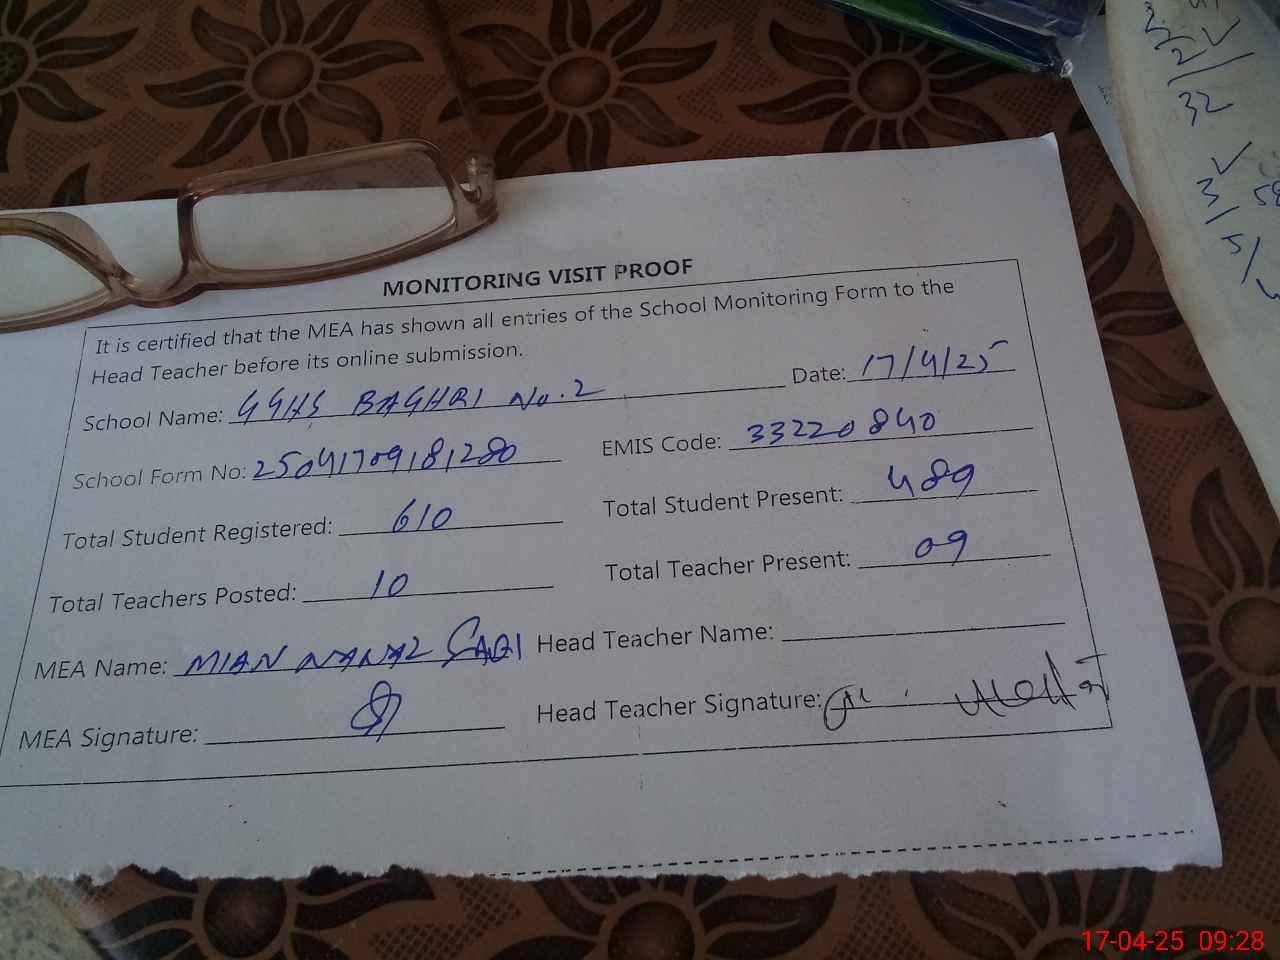 3
2
32
3/ 58
5/
MONITORING VISIT PROOF
It is certified that the MEA has shown all entries of the School Monitoring Form to the
Head Teacher before its online submission.
School Name: GGHS BAGHRI No.2 Date: 17/4/25
School Form No: 25041709181280 EMIS Code: 33220840
Total Student Registered: 610 Total Student Present: 489
Total Teachers Posted: 10 Total Teacher Present: 09
MEA Name: MIAN Head Teacher Name:
MEA Signature: Head Teacher Signature:
17-04-25 09:28